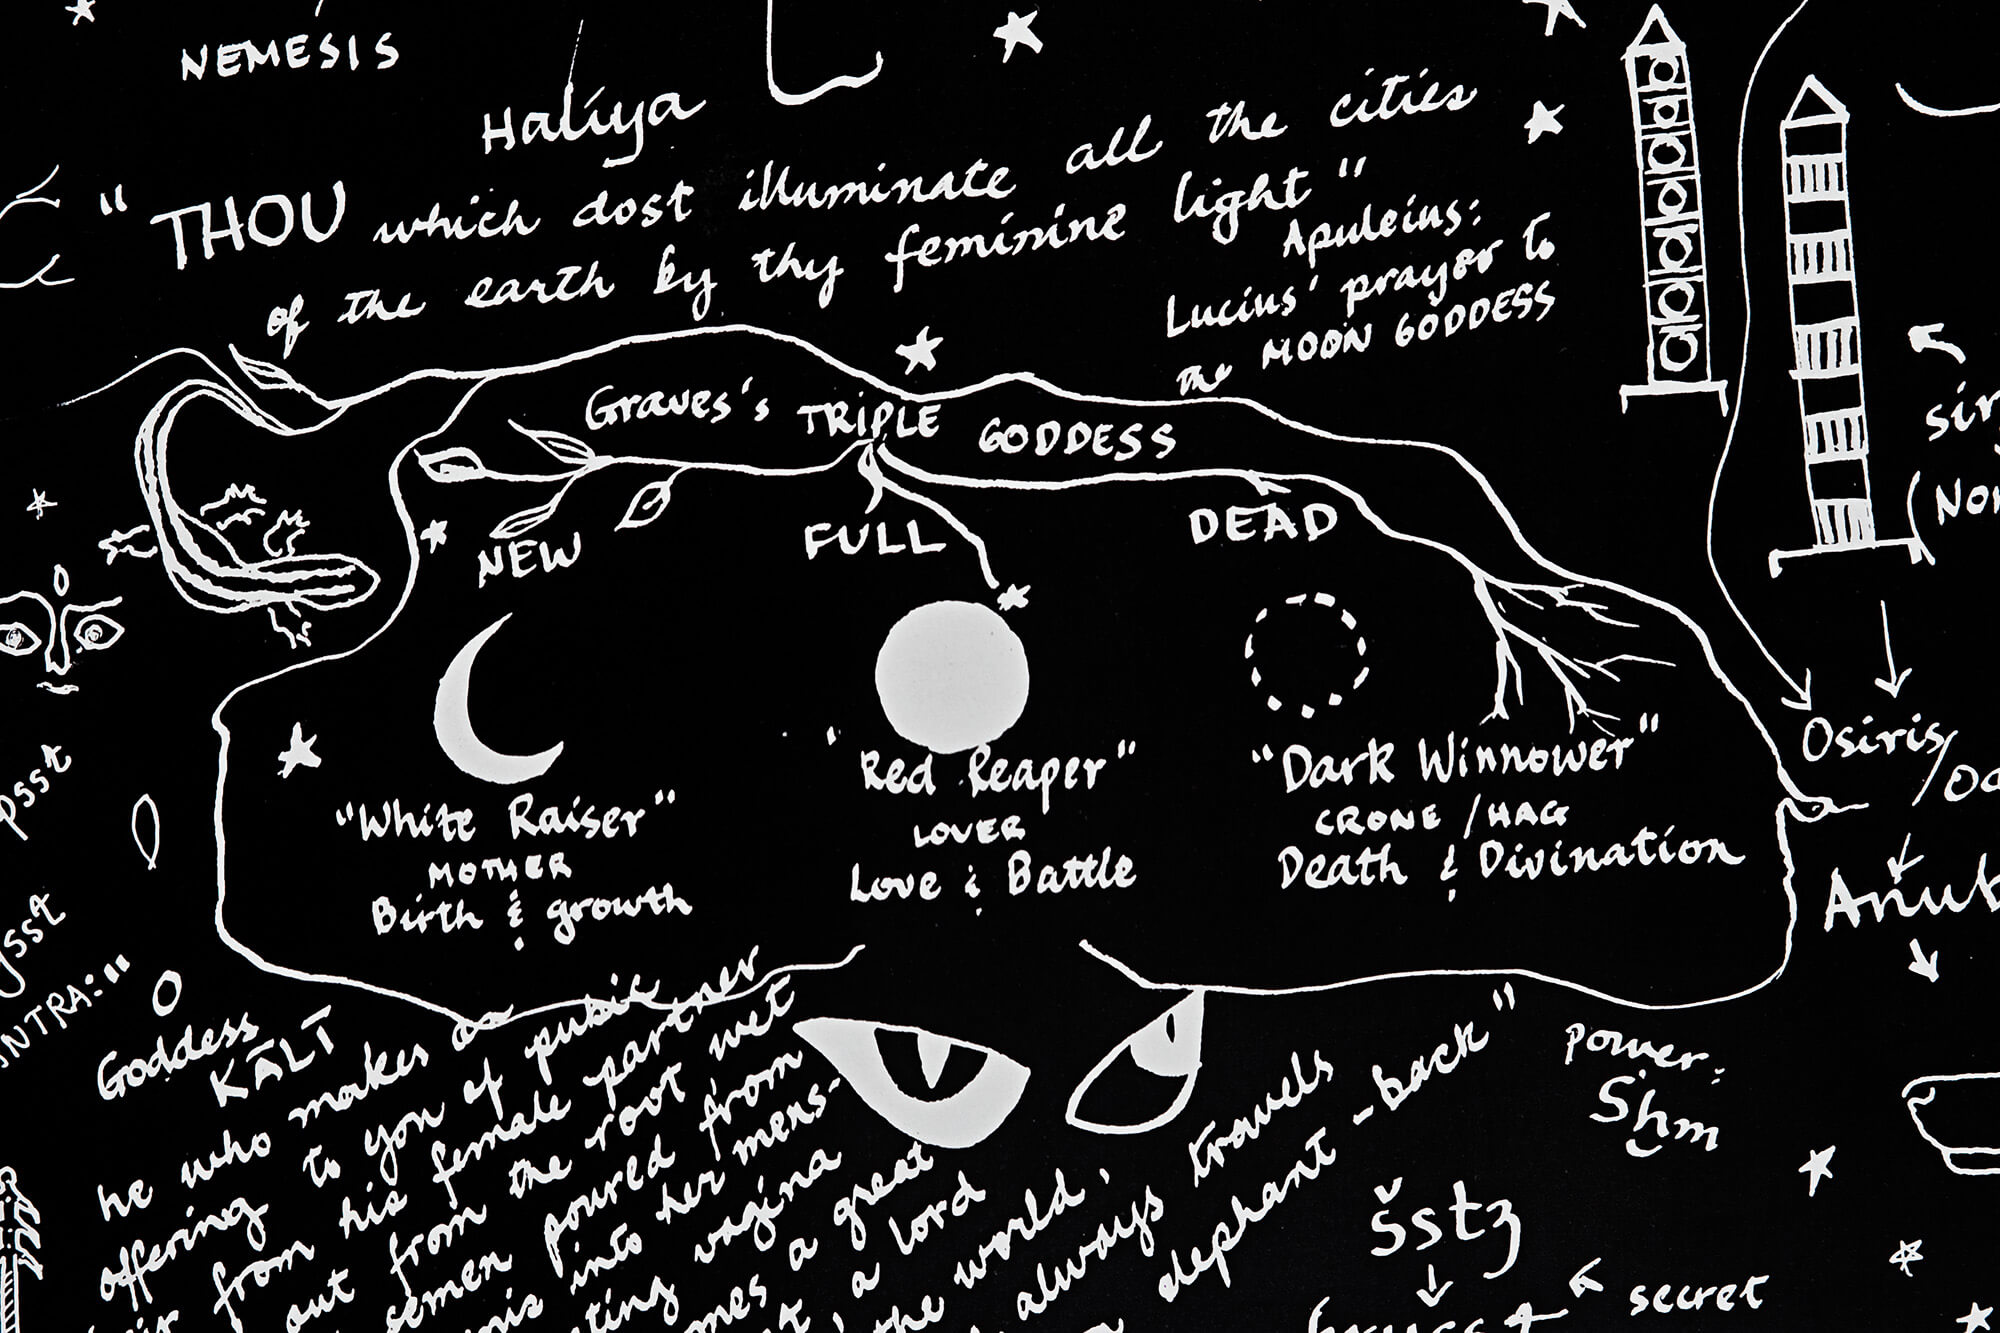 NEMESIS
Haliya
"THOU which dost illuminate all the cities
of the earth by thy feminine light"
Apuleius:
Lucius' prayer to
the MOON GODDESS
Graves's TRIPLE GODDESS
NEW
FULL
DEAD
"White Raiser"
MOTHER
Birth & growth
"Red Reaper"
LOVER
Love & Battle
"Dark Winnower"
CRONE/HAG
Death & Divination
Osiris/
psst
Goddess
KĀLĪ
he who makes an
offering to you of pubic
from his female partner
out from the root wet
semen poured from
into her mens-
vagina
a great
a lord
the world,
always travels
elephant-back"
power:
Shm
šstȝ
secret